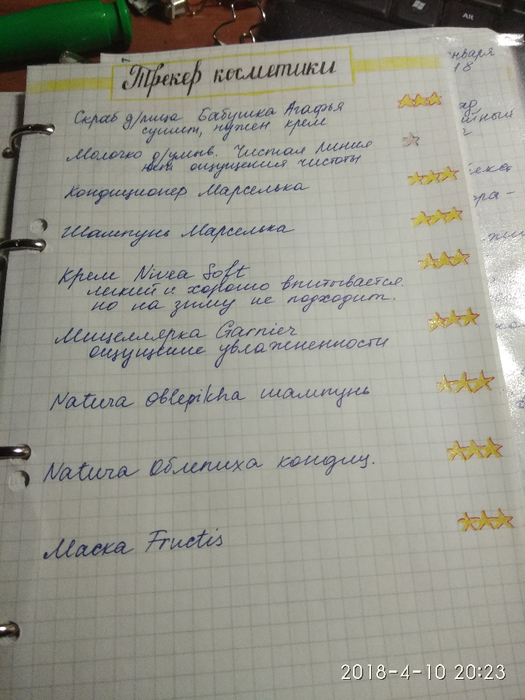 Трекер косметики
Скраб д/лица Бабушка Агафья
сушит, нужен крем
Молочко д/умыв. Чистая линия
нет ощущения чистоты
Кондиционер Марселька
Шампунь Марселька
Крем Nivea Soft
легкий и хорошо впитывается.
но на зиму не подходит.
Мицеллярка Garnier
ощущение увлажненности
Natura Oblepikha шампунь
Natura Облепиха кондиц.
Маска Fructis
нваря
18
Alt
2018-4-10 20:23